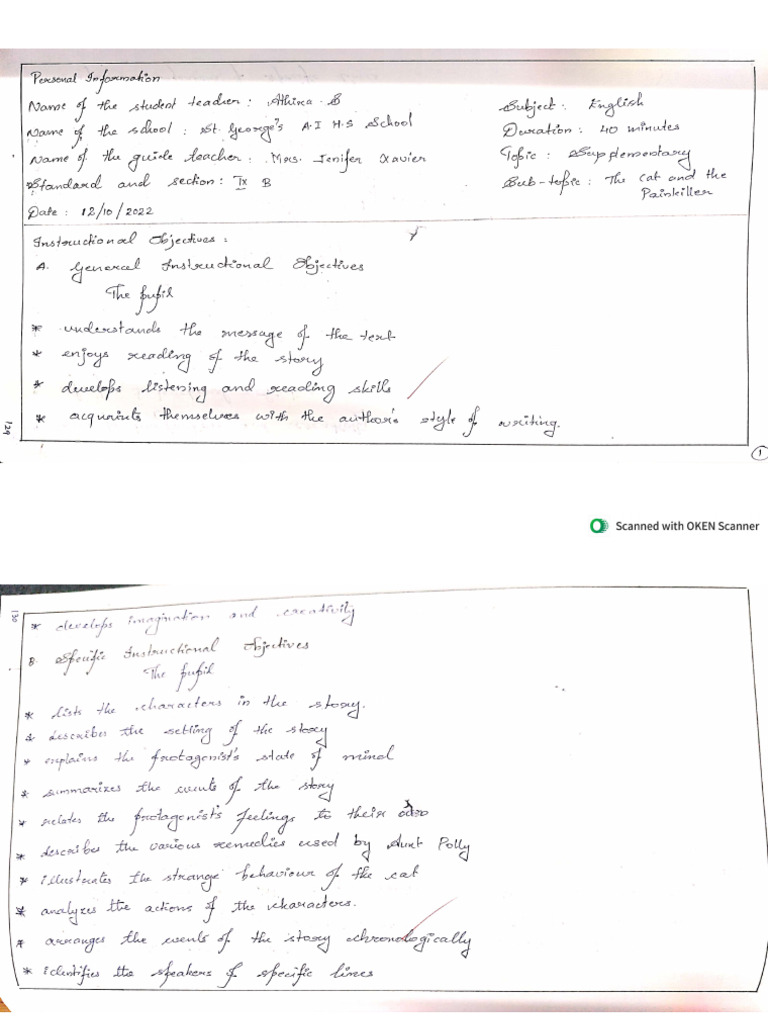 Personal Information
Name of the student teacher : Athira. B
Subject : English
Name of the school : St. George's A.I H.S School
Duration : 40 minutes
Name of the guide teacher : Mrs. Jenifer Xavier
Topic : Supplementary
Standard and section : IX B
Sub-topic : The Cat and the
Painkiller
Date : 12/10/2022
Instructional Objectives :
A. General Instructional Objectives
The pupil
* understands the message of the text
* enjoys reading of the story
* develops listening and reading skills
* acquaints themselves with the author's style of writing.
129
1
Scanned with OKEN Scanner
130
* develops imagination and creativity
B. Specific Instructional Objectives
The pupil
* lists the characters in the story.
* describes the setting of the story
* explains the protagonist's state of mind
* summarizes the events of the story
* relates the protagonist's feelings to their
* describes the various remedies used by Aunt Polly
* illustrates the strange behaviour of the cat
* analyzes the actions of the characters.
* arranges the events of the story chronologically
* identifies the speakers of specific lines